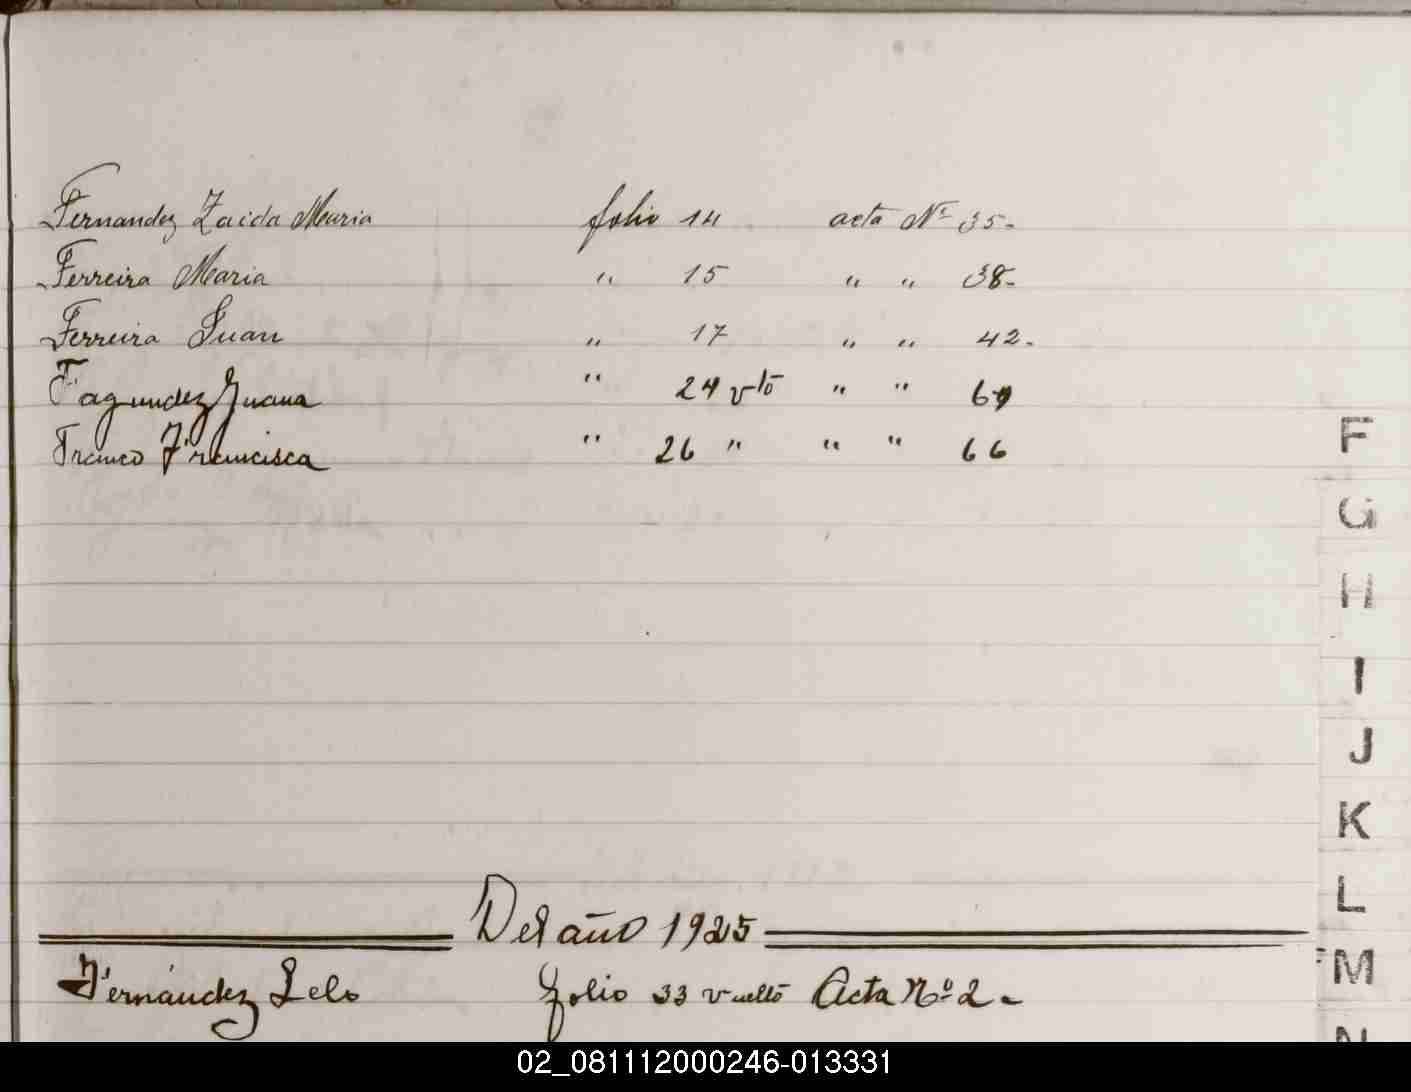 Fernandez Zaida Maria folio 14 acta Nº 35-
Ferreira Maria " 15 " " 38-
Ferreira Juan " 17 " " 42-
Fagundez Juana " 24 vtō " " 61
Franco Francisca " 26 " " " 66
F
G
H
I
J
K
L
M
N
Del año 1925
Fernández Lelo folio 33 vueltō Acta Nº 2-
02_081112000246-013331